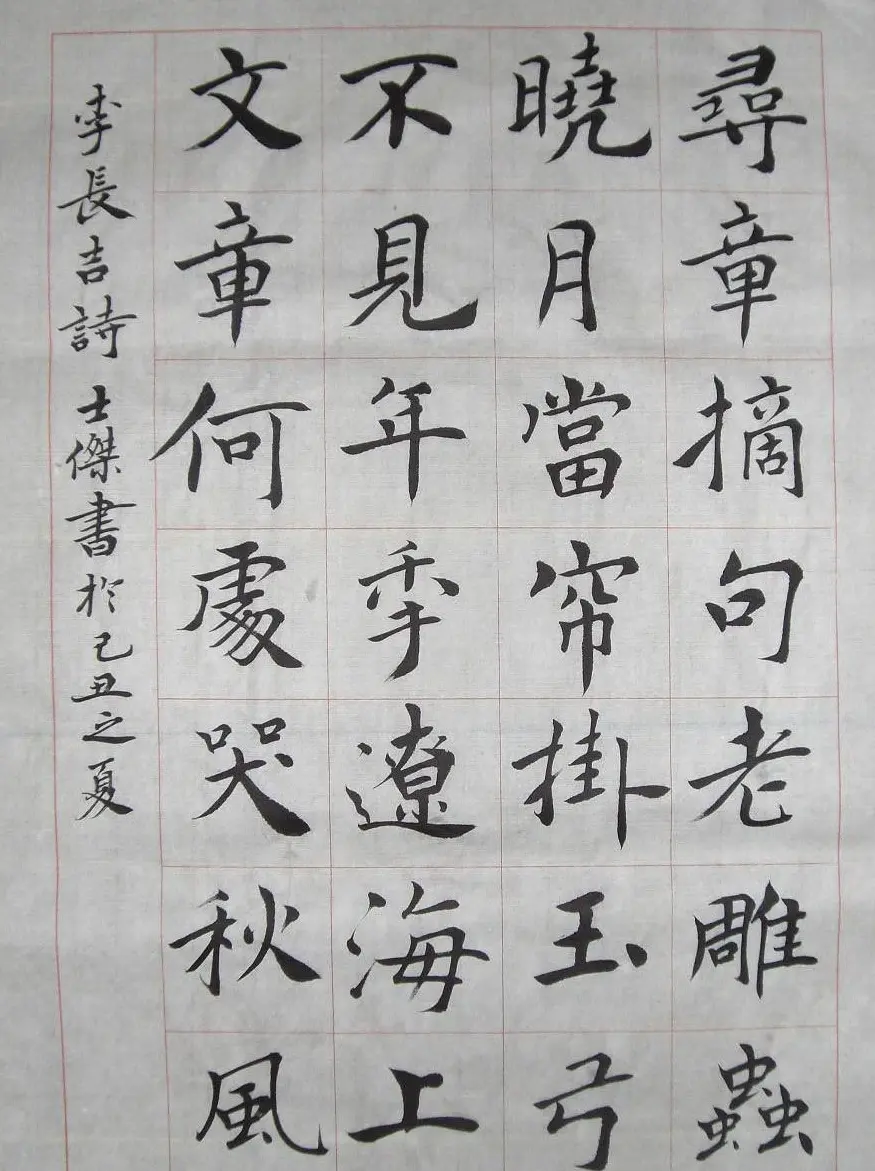 尋章摘句老雕蟲
曉月當帘掛玉弓
不見年秊遼海上
文章何處哭秋風
李長吉詩 士傑書於己丑之夏